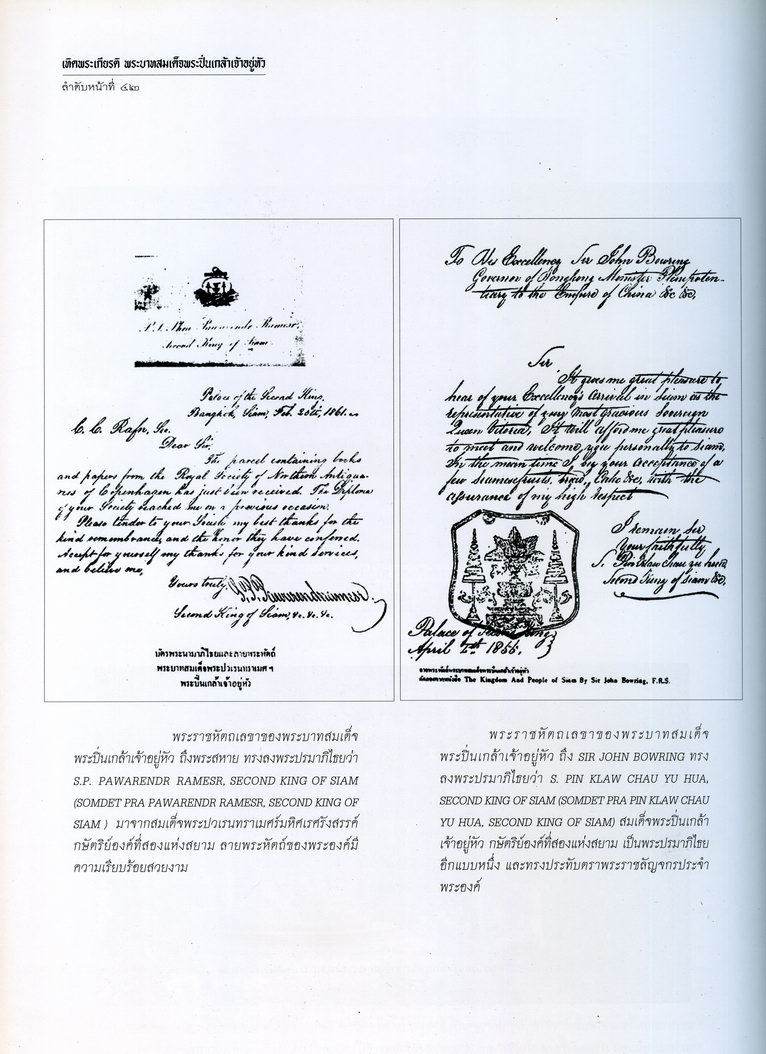 เทิดพระเกียรติ พระบาทสมเด็จพระปิ่นเกล้าเจ้าอยู่หัว
ลำดับหน้าที่ ๔๒
Second King of Siam
Palace of the Second King,
Bangkok, Siam, Feb. 20th, 1861.
C. C. Rafn, Sec.
Dear Sir,
The parcel containing books
and papers from the Royal Society of Northern Antiqua-
ries of Copenhagen has just been received. The Diploma
of your Society reached me on a previous occasion.
Please tender to your Society my best thanks for the
kind remembrance, and the honor they have confered.
Accept for yourself my thanks for your kind services,
and believe me,
Yours truly,
Second King of Siam, &c. &c. &c.
บัตรพระนามาภิไธยและลายพระหัตถ์
พระบาทสมเด็จพระปวเรนทราเมศ ฯ
พระปิ่นเกล้าเจ้าอยู่หัว
To His Excellency Sir John Bowring
Governor of Hongkong Minister Plenipoten-
tiary to the Empire of China &c &c,
Sir
It gives me great pleasure to
hear of your Excellency's arrival in Siam as the
representative of your most gracious Sovereign
Queen Victoria, It will afford me great pleasure
to meet and welcome you personally to Siam,
In the mean time I beg your acceptance of a
few Siamese fruits, &c, with the
assurance of my high respect
I remain sir
Your faithfully
S. Pin Klaw Chau yu hua
Second King of Siam &c,
Palace of
April 1855.
The Kingdom And People of Siam By Sir John Bowring, F.R.S.
พระราชหัตถเลขาของพระบาทสมเด็จ
พระปิ่นเกล้าเจ้าอยู่หัว ถึงพระสหาย ทรงลงพระปรมาภิไธยว่า
S.P. PAWARENDR RAMESR, SECOND KING OF SIAM
(SOMDET PRA PAWARENDR RAMESR, SECOND KING OF
SIAM ) มาจากสมเด็จพระปวเรนทราเมศร์มหิศเรศรังสรรค์
กษัตริย์องค์ที่สองแห่งสยาม ลายพระหัตถ์ของพระองค์มี
ความเรียบร้อยสวยงาม
พระราชหัตถเลขาของพระบาทสมเด็จ
พระปิ่นเกล้าเจ้าอยู่หัว ถึง SIR JOHN BOWRING ทรง
ลงพระปรมาภิไธยว่า S. PIN KLAW CHAU YU HUA,
SECOND KING OF SIAM (SOMDET PRA PIN KLAW CHAU
YU HUA, SECOND KING OF SIAM) สมเด็จพระปิ่นเกล้า
เจ้าอยู่หัว กษัตริย์องค์ที่สองแห่งสยาม เป็นพระปรมาภิไธย
อีกแบบหนึ่ง และทรงประทับตราพระราชลัญจกรประจำ
พระองค์